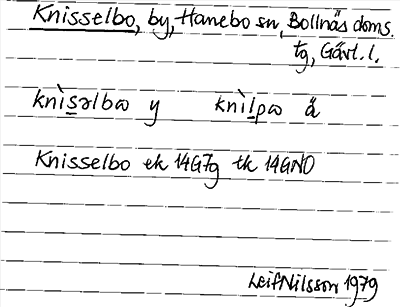 Knisselbo, by, Hanebo sn, Bollnäs doms.
tg, Gävl. l.
knìsəlbω y knìlpω ä
Knisselbo ek 14G7g tk 14GNO
Leif Nilsson 1979